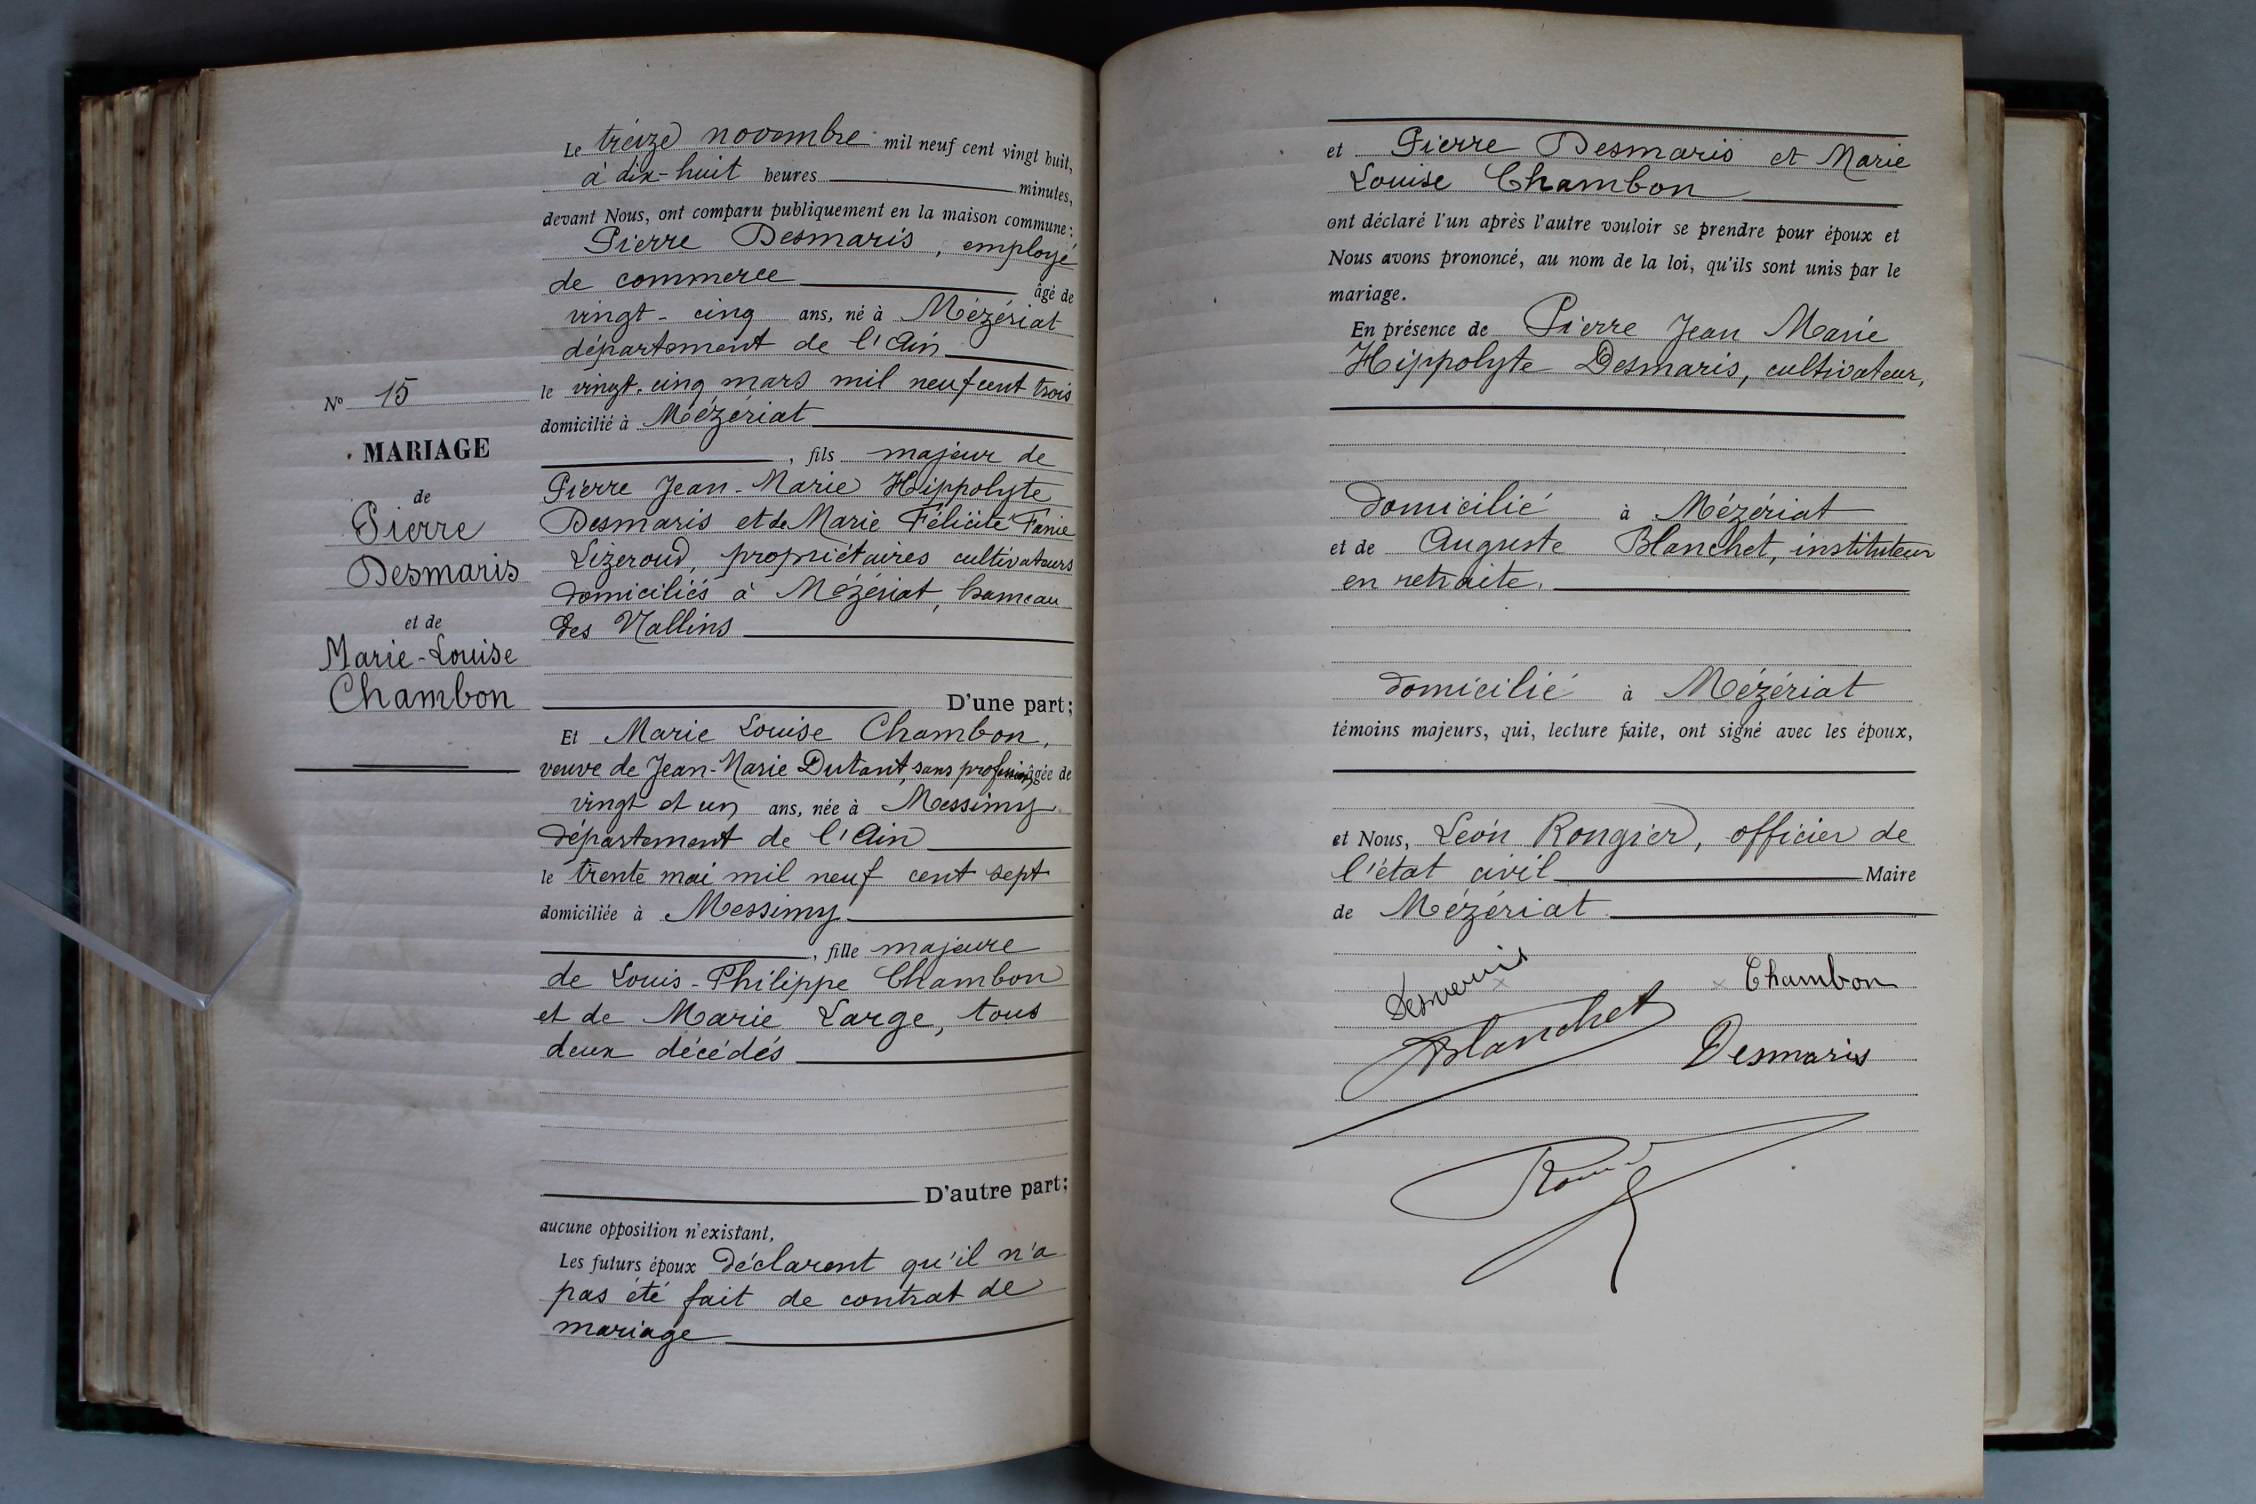 Nº 15
MARIAGE
de
Pierre
Desmaris
et de
Marie-Louise
Chambon
Le treize novembre mil neuf cent vingt huit,
à dix-huit heures minutes,
devant Nous, ont comparu publiquement en la maison commune:
Pierre Desmaris, employé
de commerce âgé de
vingt-cinq ans, né à Mézériat
département de l'Ain
le vingt-cinq mars mil neuf cent trois
domicilié à Mézériat
, fils majeur de
Pierre Jean-Marie Hippolyte
Desmaris et de Marie Félicité Fanie
Lizeroud, propriétaires cultivateurs
domiciliés à Mézériat, hameau
des Vallins
D'une part;
Et Marie Louise Chambon,
veuve de Jean-Marie Dutant, sans profession, âgée de
vingt et un ans, née à Messimy
département de l'Ain
le trente mai mil neuf cent sept
domiciliée à Messimy
, fille majeure
de Louis-Philippe Chambon
et de Marie Large, tous
deux décédés
D'autre part;
aucune opposition n'existant,
Les futurs époux déclarent qu'il n'a
pas été fait de contrat de
mariage
et Pierre Desmaris et Marie
Louise Chambon
ont déclaré l'un après l'autre vouloir se prendre pour époux et
Nous avons prononcé, au nom de la loi, qu'ils sont unis par le
mariage.
En présence de Pierre Jean Marie
Hippolyte Desmaris, cultivateur,
domicilié à Mézériat
et de Auguste Blanchet, instituteur
en retraite,
domicilié à Mézériat
témoins majeurs, qui, lecture faite, ont signé avec les époux,
et Nous, Léon Rongier, officier de
l'état civil Maire
de Mézériat
Desmaris Chambon
Blanchet Desmaris